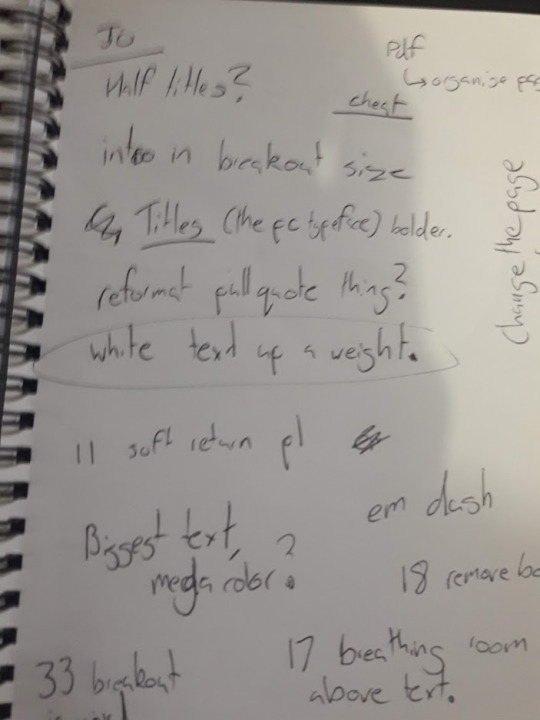 To
Pdf
↳ organise pag
Half titles?
cheat
intro in breakout size
Titles (the pc typeface) bolder.
reformat pull quote thing?
Change the page
white text up a weight.
11 soft return pl
em dash
Biggest text,
mega color?
18 remove bo
17 breathing room
above text.
33 breakout